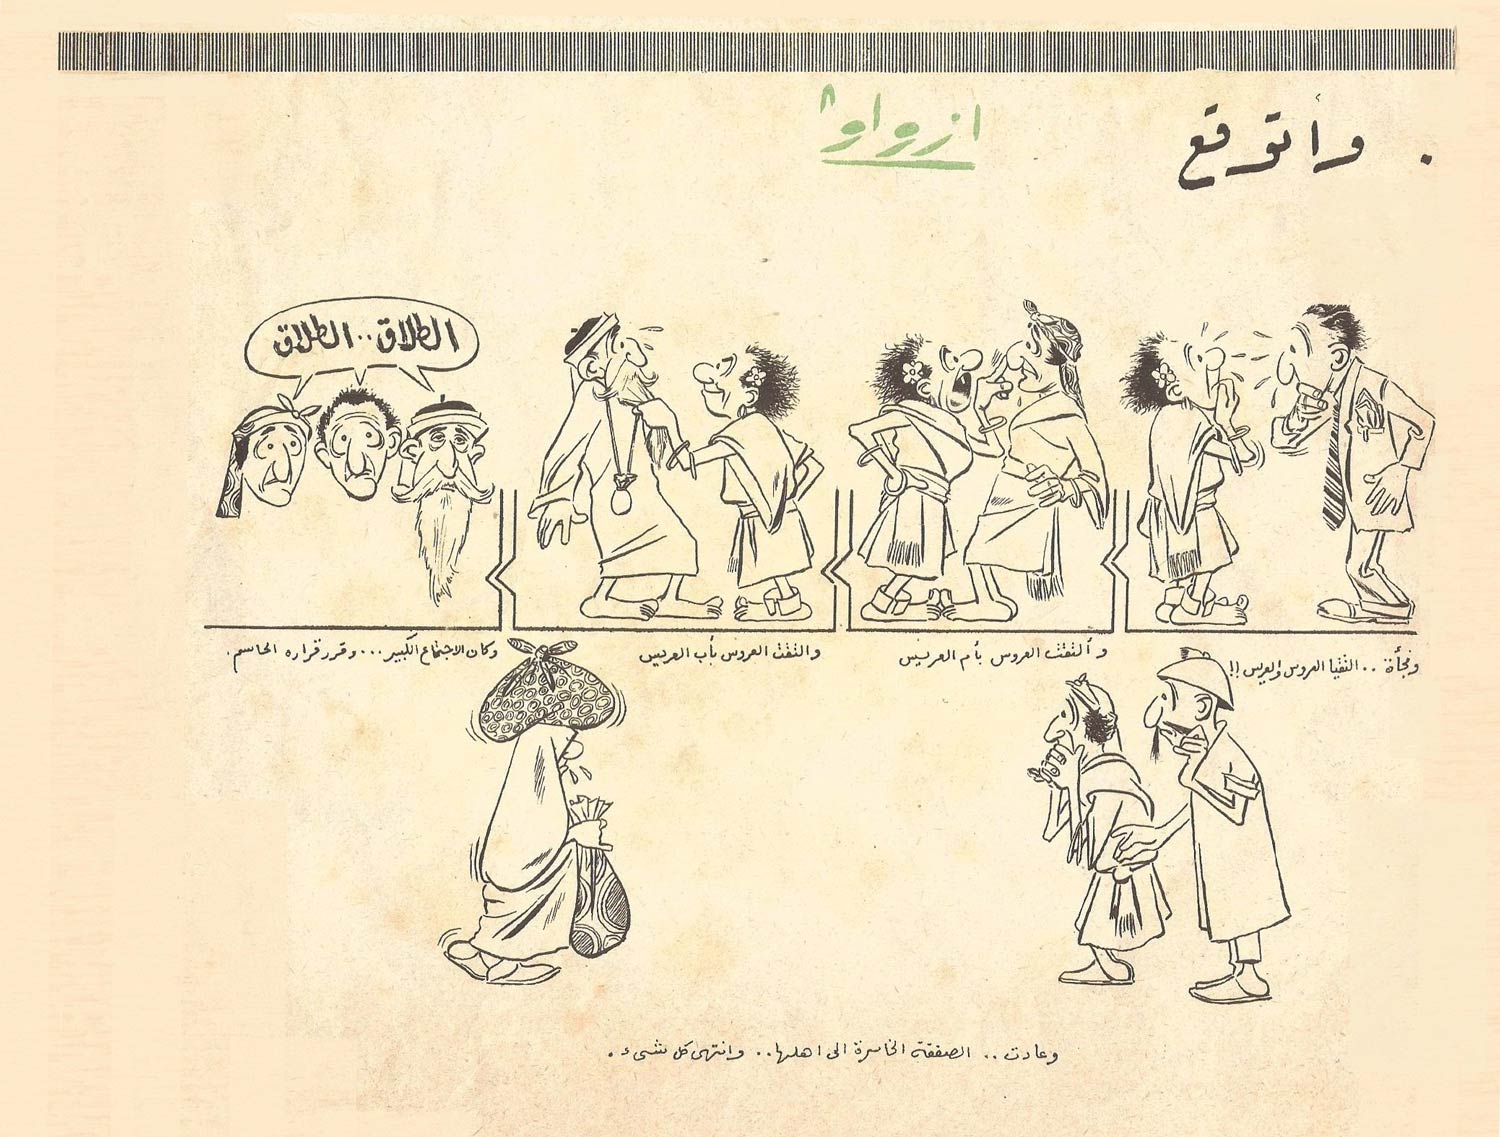 . وأتوقع
ازواو
وفجأة .. التقيا العروس والعريس !!
وألتقت العروس بأم العريس
والتقت العروس بأب العريس
الطلاق .. الطلاق
وكان الاجتماع الكبير ... وقرر قراره الحاسم .
وعادت .. الصفقة الخاسرة الى اهلها .. وانتهى كل شىء .